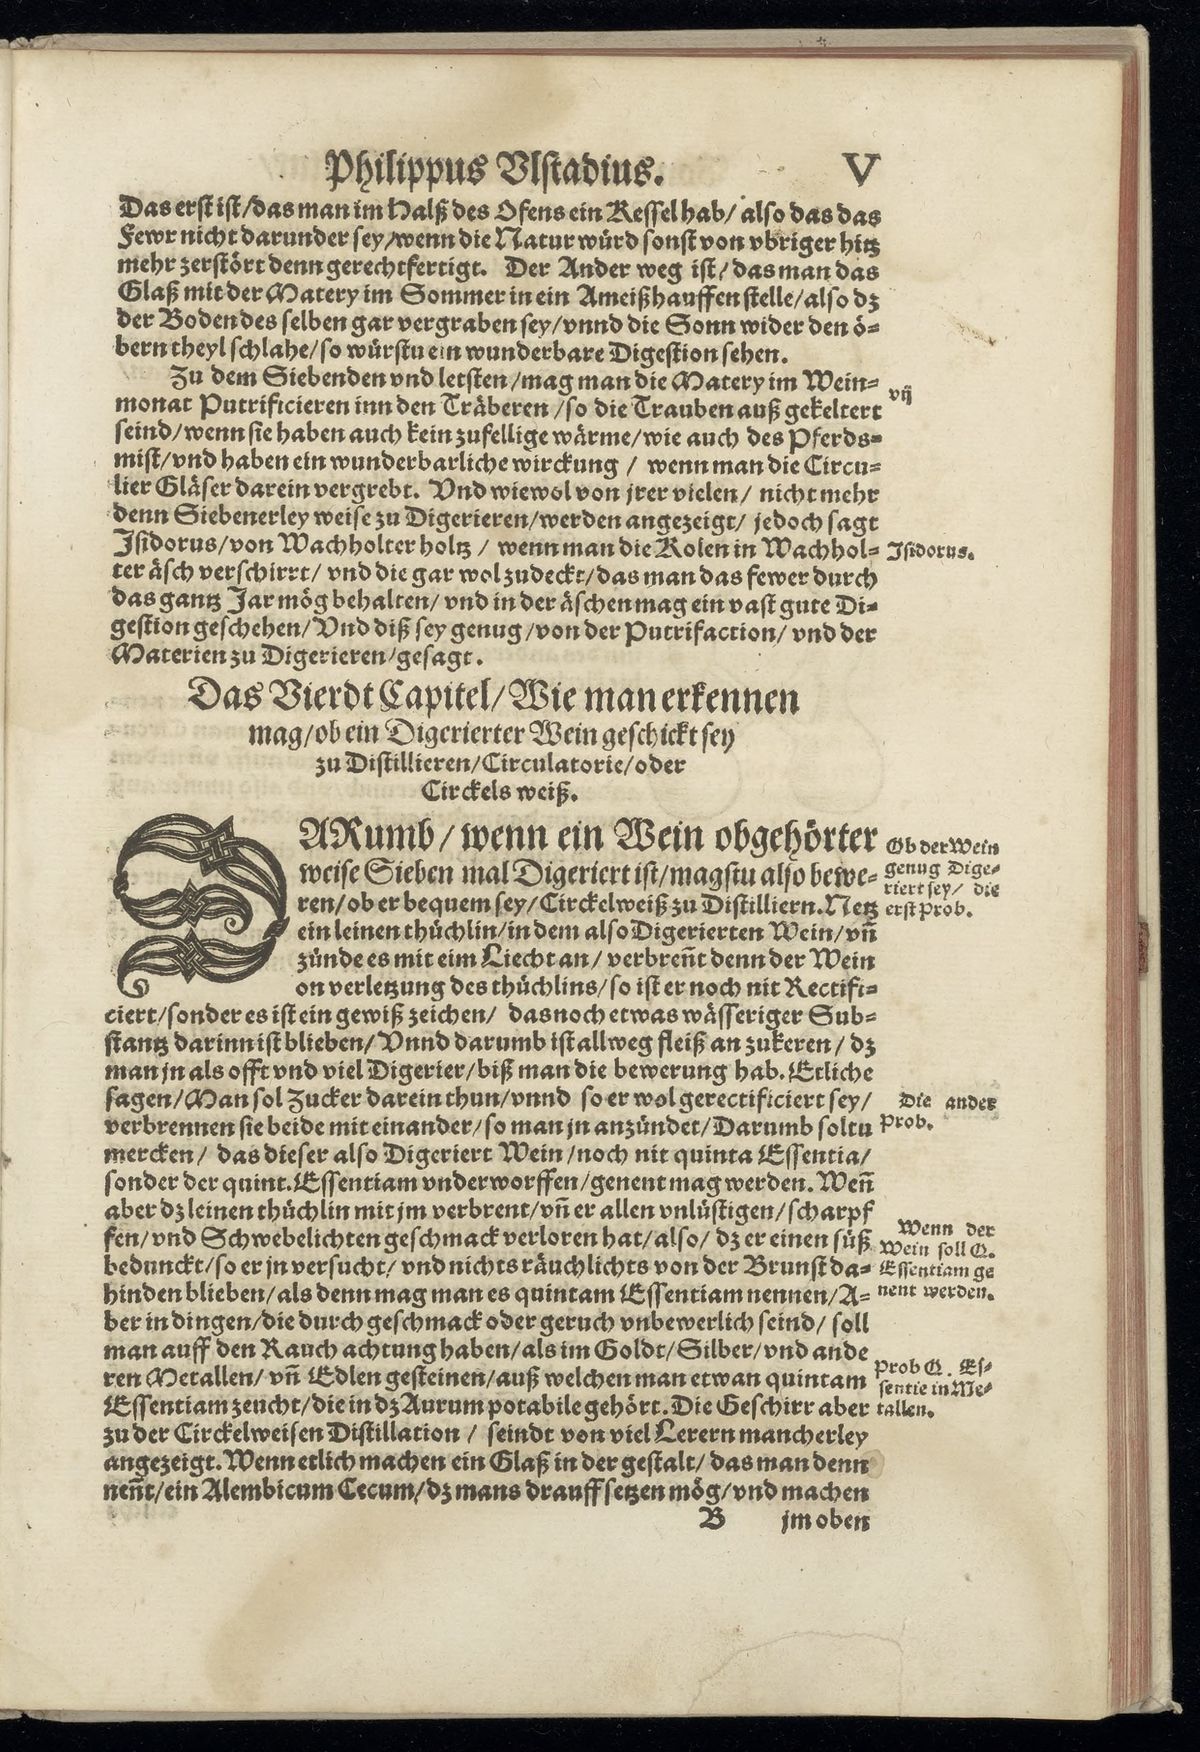 Philippus Vlstadius. V
Das erst ist/das man im Halß des Ofens ein Kessel hab/ also das das
Fewr nicht darunder sey/wenn die Natur würd sonst von vbriger hitz
mehr zerstört denn gerechtfertigt. Der Ander weg ist/ das man das
Glaß mit der Matery im Sommer in ein Ameißhauffen stelle/also dz
der Boden des selben gar vergraben sey/vnnd die Sonn wider den ö-
bern theyl schlahe/so würstu ein wunderbare Digestion sehen.
Zu dem Siebenden vnd letsten/mag man die Matery im Wein-
vij
monat Putrificieren inn den Träberen/so die Trauben auß gekeltert
seind/wenn sie haben auch kein zufellige wärme/wie auch des Pferds-
mist/vnd haben ein wunderbarliche wirckung/ wenn man die Circu-
lier Gläser darein vergrebt. Vnd wiewol von jrer vielen/ nicht mehr
denn Siebenerley weise zu Digerieren/werden angezeigt/ jedoch sagt
Isidorus/von Wacholter holtz/ wenn man die Kolen in Wachhol-
Isidorus.
ter äsch verschirrt/ vnd die gar wol zudeckt/das man das fewer durch
das gantz Jar mög behalten/ vnd in der äschen mag ein vast gute Di-
gestion geschehen/Vnd diß sey genug/von der Putrifaction/ vnd der
Materien zu Digerieren/gesagt.
Das Vierdt Capitel/Wie man erkennen
mag/ob ein Digerierter Wein geschickt sey
zu Distillieren/Circulatorie/oder
Circkels weiß.
DARumb/wenn ein Wein obgehörter
weise Sieben mal Digeriert ist/magstu also bewe-
ren/ob er bequem sey/Circkelweiß zu Distilliern. Netz
ein leinen thüchlin/in dem also Digerierten Wein/vñ
zünde es mit eim Liecht an/ verbreñt denn der Wein
on verletzung des thüchlins/so ist er noch nit Rectifi-
Ob der Wein
genug Dige-
riert sey/ die
erst Prob.
ciert/sonder es ist ein gewiß zeichen/ das noch etwas wässeriger Sub-
stantz darinn ist blieben/Vnnd darumb ist allweg fleiß an zukeren/ dz
man jn als offt vnd viel Digerier/biß man die bewerung hab. Etliche
sagen/Man sol Zucker darein thun/vnnd so er wol gerectificiert sey/
verbrennen sie beide mit einander/so man jn anzündet/Darumb soltu
Die ander
Prob.
mercken/ das dieser also Digeriert Wein/noch nit quinta Essentia/
sonder der quint. Essentiam vnderworffen/genent mag werden. Weñ
aber dz leinen thüchlin mit jm verbrent/vñ er allen vnlüstigen/scharpf
fen/vnd Schwebelichten geschmack verloren hat/also/ dz er einen süß
bedunckt/so er jn versucht/ vnd nichts räuchlichts von der Brunst da-
hinden blieben/als denn mag man es quintam Essentiam nennen/A-
Wenn der
Wein soll Q.
Essentiam ge
nent werden.
ber in dingen/die durch geschmack oder geruch vnbewerlich seind/ soll
man auff den Rauch achtung haben/als im Goldt/Silber/vnd ande
ren Metallen/vñ Edlen gesteinen/auß welchen man etwan quintam
Essentiam zeucht/die in dz Aurum potabile gehört. Die Geschirr aber
Prob Q. Es-
sentie in Me-
tallen.
zu der Circkelweisen Distillation/ seindt von viel Lerern mancherley
angezeigt. Wenn etlich machen ein Glaß in der gestalt/ das man denn
neñt/ein Alembicum Cecum/dz mans drauff setzen mög/vnd machen
B jm oben